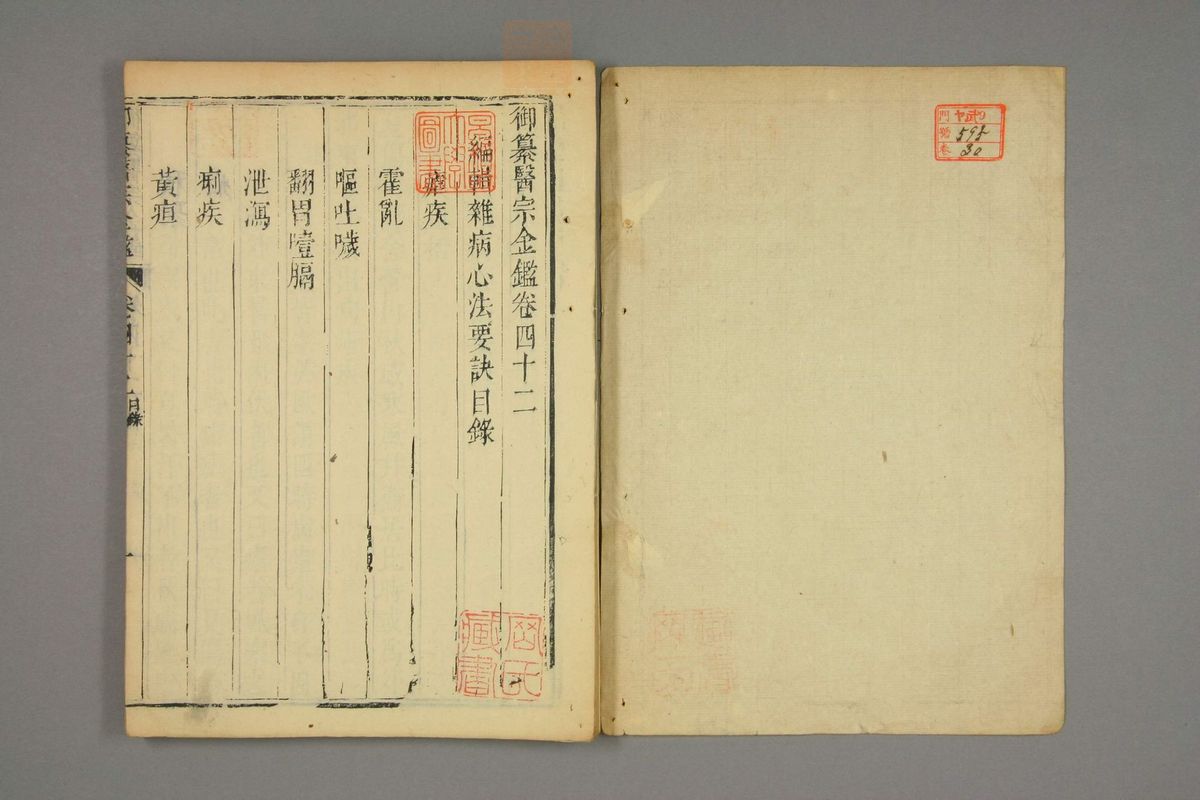 御纂醫宗金鑑卷四十二
編輯雜病心法要訣目錄
瘧疾
霍亂
嘔吐噦
翻胃噎膈
泄瀉
痢疾
黃疸
目錄
一
圖書
藏書
門
號 595
卷 30